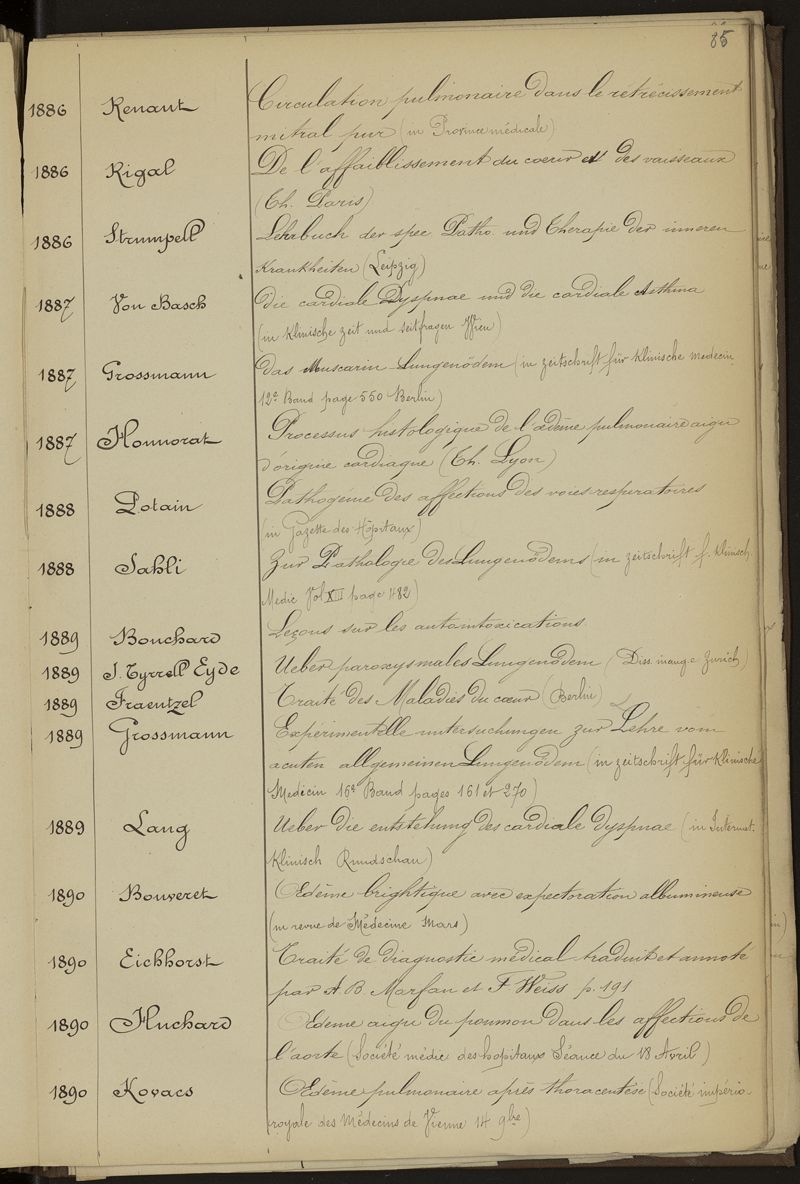 85
1886 Renaut Circulation pulmonaire dans le rétrécissement
mitral pur (in Province médicale)
1886 Rigal De l'affaiblissement du coeur et des vaisseaux
(Th. Paris)
1886 Strumpell Lehrbuch der spec Patho. und Therapie der inneren
Krankheiten (Leipzig)
1887 Von Basch Die cardiale Dyspnae und die cardiale Asthma
(in Klinische zeit und seitfragen Wien)
1887 Grossmann das Muscarin Lungenödem (in zeitschrift für Klinische medecin
12e Band page 550 Berlin)
1887 Honnorat Processus histologique de l'oedème pulmonaire aigu
d'origine cardiaque (Th. Lyon)
1888 Potain Pathogénie des affections des voies respiratoires
(in Gazette des Hôpitaux)
1888 Sahli Zur Pathologie des Lungenödems (in zeitschrift f. Klinisch.
Medic Vol XIII page 482)
1889 Bouchard Leçons sur les autointoxications
1889 J. Tyrrell Eyde Ueber paroxysmales Lungenödem (Diss. inaug. Zurich)
1889 Fraentzel Traité des Maladies du coeur (Berlin)
1889 Grossmann Expérimentelle untersuchungen zur Lehre vom
acuten allgemeinen Lungenödem (in zeitschrift für Klinische
Medicin 16e Band pages 161 et 270)
1889 Lang Ueber die entstehung des cardiale dyspnae (in Internat.
Klinisch Rundschau)
1890 Bouveret Oedème brightique avec expectoration albumineuse
(in revue de Médecine Mars)
1890 Eichhorst Traité de diagnostic médical traduit et annoté
par A. B. Marfan et F Weiss p. 191
1890 Huchard Oedeme aigu du poumon dans les affections de
l'aorte (Société médic des hopitaux Séance du 18 Avril)
1890 Kovacs Oedème pulmonaire après thoracentèse (Société império-
royale des Médecins de Vienne 14 9bre)